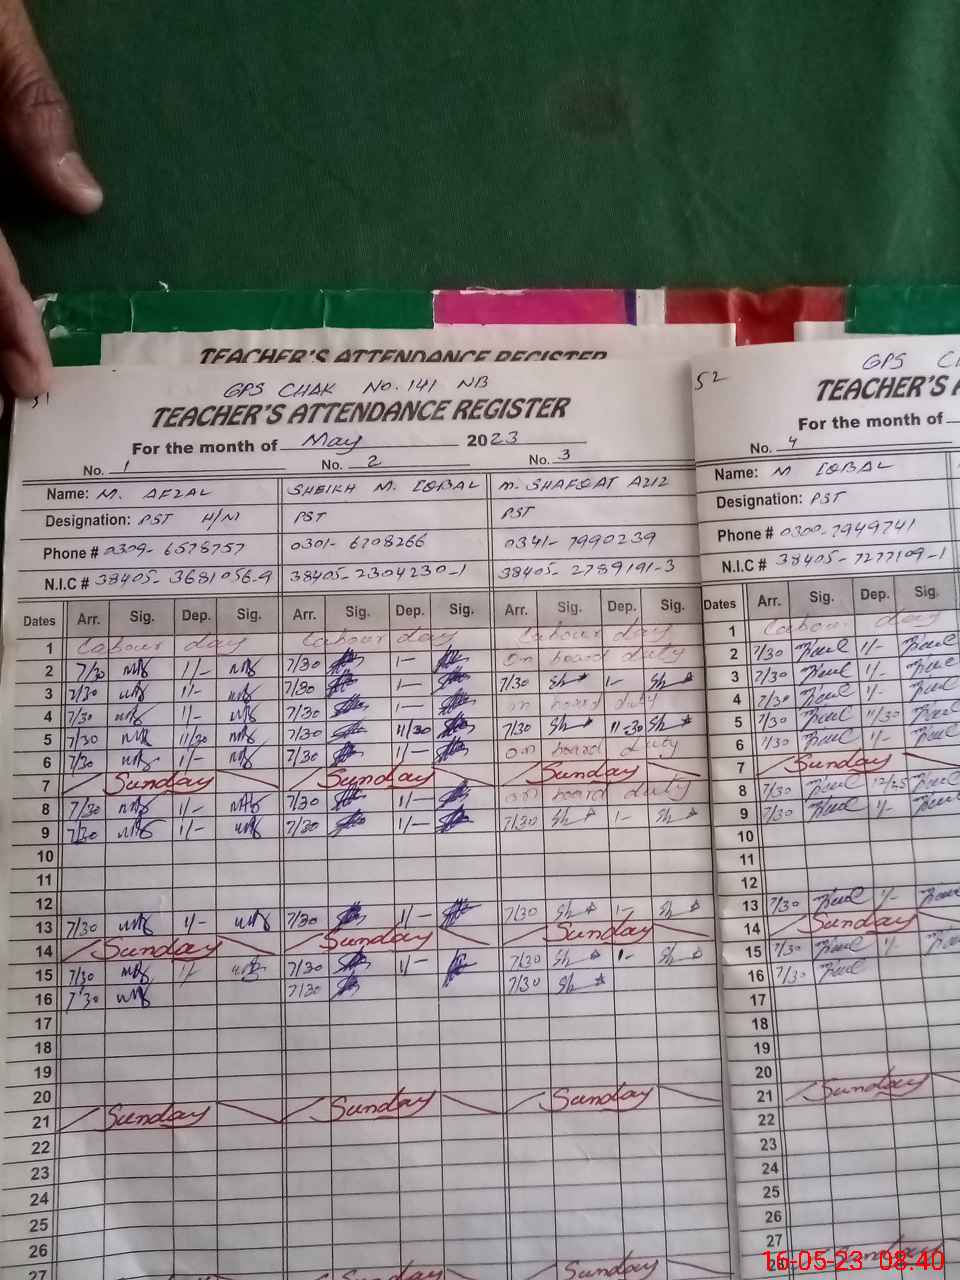 TEACHER'S ATTENDANCE REGISTER
51
GPS CHAK No. 141 NB
TEACHER'S ATTENDANCE REGISTER
For the month of May 2023
No. 1 No. 2 No. 3
Name: M. AFZAL SHEIKH M. IQBAL M. SHAFQAT AZIZ
Designation: PST H/M PST PST
Phone # 0301-6708266 0341-7990239
N.I.C # 38405-3681056-9 38405-2304230-1 38405-2789191-3
Dates Arr. Sig. Dep. Sig. Arr. Sig. Dep. Sig. Arr. Sig. Dep. Sig.
1 Labour day Labour day Labour day
2 7/30 1/- 7/30 1- on board duty
3 7/30 1/- 7/30 1- 7/30 1-
4 7/30 1/- 7/30 1- on board duty
5 7/30 11/30 7/30 11/30 7/30 11-30
6 7/30 1/- 7/30 1/- on board duty
7 Sunday Sunday Sunday
8 7/30 1/- 7/30 1/- on board duty
9 7/30 1/- 7/30 1/- 7/30 1-
10
11
12
13 7/30 1/- 7/30 1/- 7/30 1-
14 Sunday Sunday Sunday
15 7/30 1/- 7/30 1/- 7/30 1-
16 7/30 7/30 7/30
17
18
19
20
21 Sunday Sunday Sunday
22
23
24
25
26
27
52
GPS
TEACHER'S
For the month of
No. 4
Name: M IQBAL
Designation: PST
Phone # 0300-7949741
N.I.C # 38405-7277109-1
Dates Arr. Sig. Dep. Sig.
1 Labour day
2 7/30 1/-
3 7/30 1/-
4 7/30 1/-
5 7/30 11/30
6 7/30 1/-
7 Sunday
8 7/30 12/25
9 7/30 1/-
10
11
12
13 7/30 1/-
14 Sunday
15 7/30 1/-
16 7/30
17
18
19
20
21 Sunday
22
23
24
25
26
27
28 Sunday
16-05-23 08.40